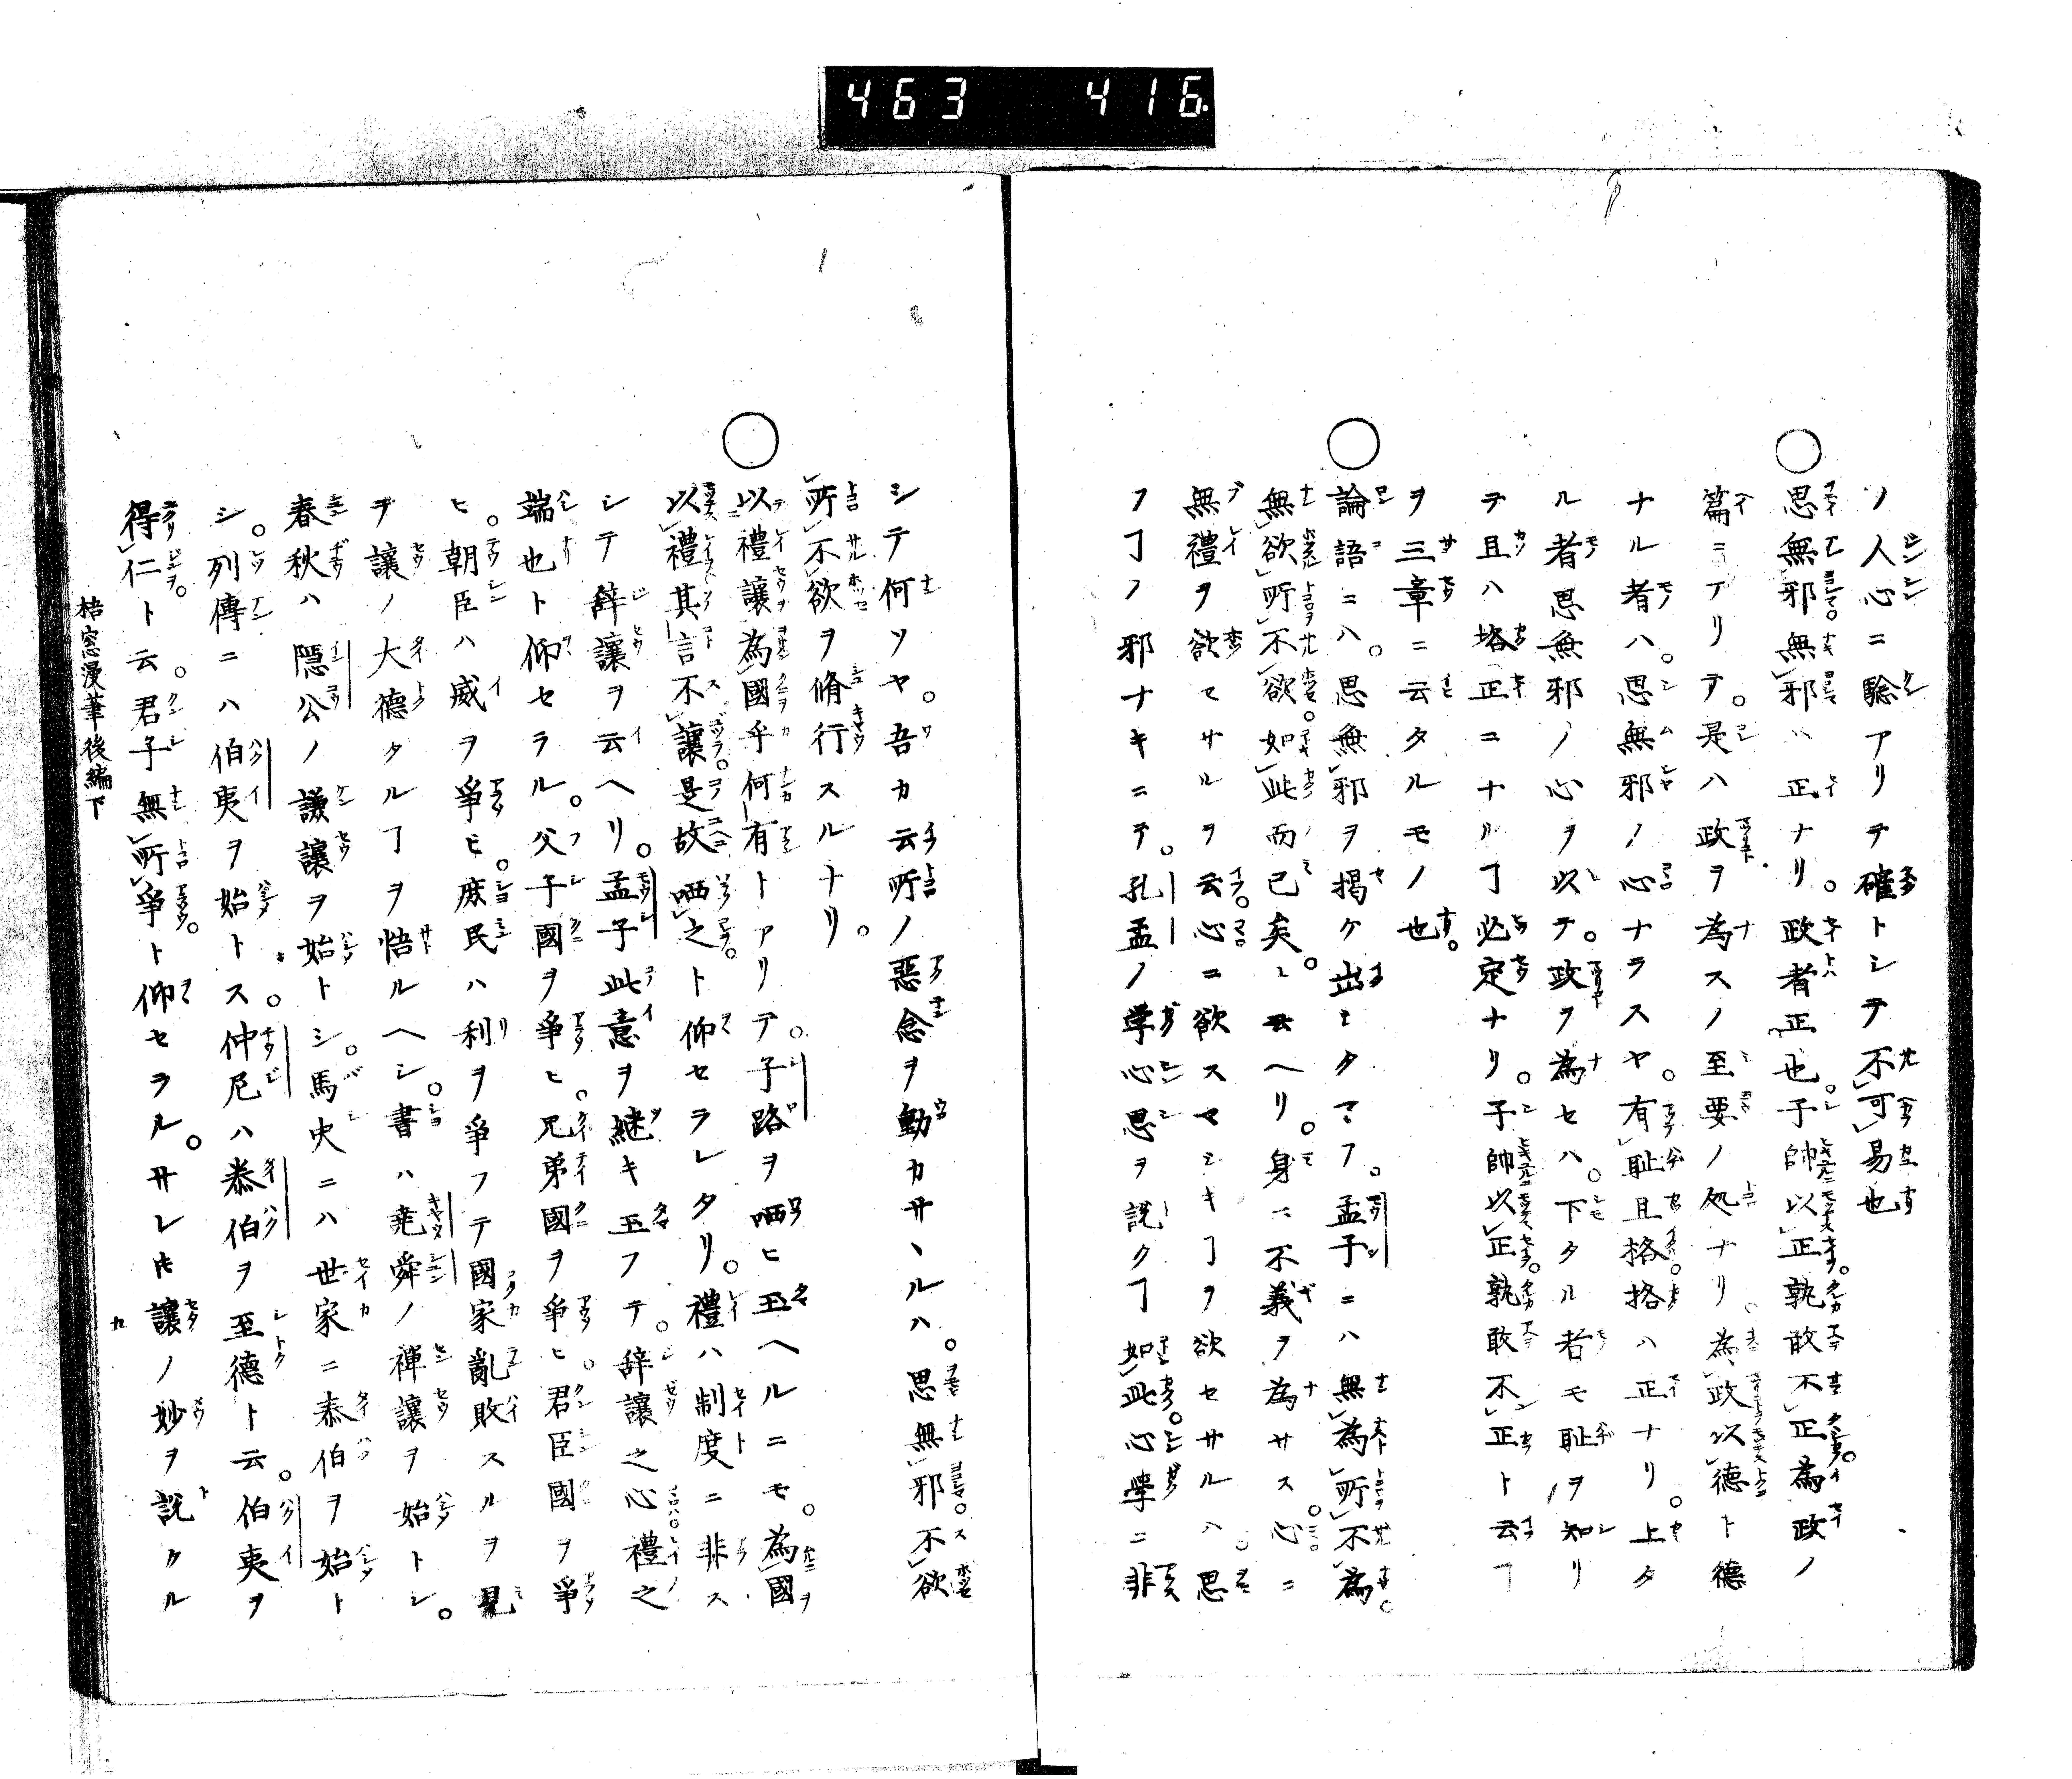 463 416
ソ人心ニ驗アリヲ確トシテ不可易也
思無邪無邪ハ正ナリ。政者正也。子帥以正孰敢不正為政ノ
篇ニアリテ。是ハ政ヲ為スノ至要ノ処ナリ。為政以德ト德
ナル者ハ。思無邪ノ心ナラスヤ。有恥且格格ハ正ナリ。上タ
ル者思無邪ノ心ヲ以テ。政ヲ為セハ。下タル者モ恥ヲ知リ
ヲ且ハ格正ニナルヿ必定ナリ。子帥以正孰敢不正ト云ヿ
ヲ三章ニ云タルモノ也。
論語ニハ。思無邪ヲ掲ケ出シタマフ。孟子ニハ無為所不為。
無欲所不欲。如此而已矣。ト云ヘリ。身ニ不義ヲ為サス。心ニ
無禮ヲ欲セサルヲ云。心ニ欲スマシキヿヲ欲セサルハ。思
フヿノ邪ナキニテ。孔孟ノ学心思ヲ説クヿ如此。心學ニ非
シテ何ソヤ。吾カ云所ノ惡念ヲ動カサヽルハ。思無邪。不欲
所不欲ヲ脩行スルナリ。
以禮讓為國乎何有トアリテ。子路ヲ哂ヒ玉ヘルニモ。為國
以禮其言不讓。是故哂之ト仰セラレタリ。禮ハ制度ニ非ス
シテ辭讓ヲ云ヘリ。孟子此意ヲ継キ玉フテ。辞讓之心禮之
端也ト仰セラル。父子國ヲ爭ヒ。兄弟國ヲ爭ヒ。君臣國ヲ爭
ヒ。朝臣ハ威ヲ爭ヒ。庶民ハ利ヲ爭フテ國家亂敗スルヲ見
ヲ讓ノ大德タルヿヲ悟ルヘシ。書ハ堯舜ノ禪讓ヲ始トシ。
春秋ハ隱公ノ謙讓ヲ始トシ。馬史ニハ世家ニ泰伯ヲ始ト
シ。列傳ニハ伯夷ヲ始トス。仲尼ハ泰伯ヲ至德ト云。伯夷ヲ
得仁ト云。君子無所爭ト仰セラル。サレ𪜈讓ノ妙ヲ説クル
梧窓漫筆後編下 九